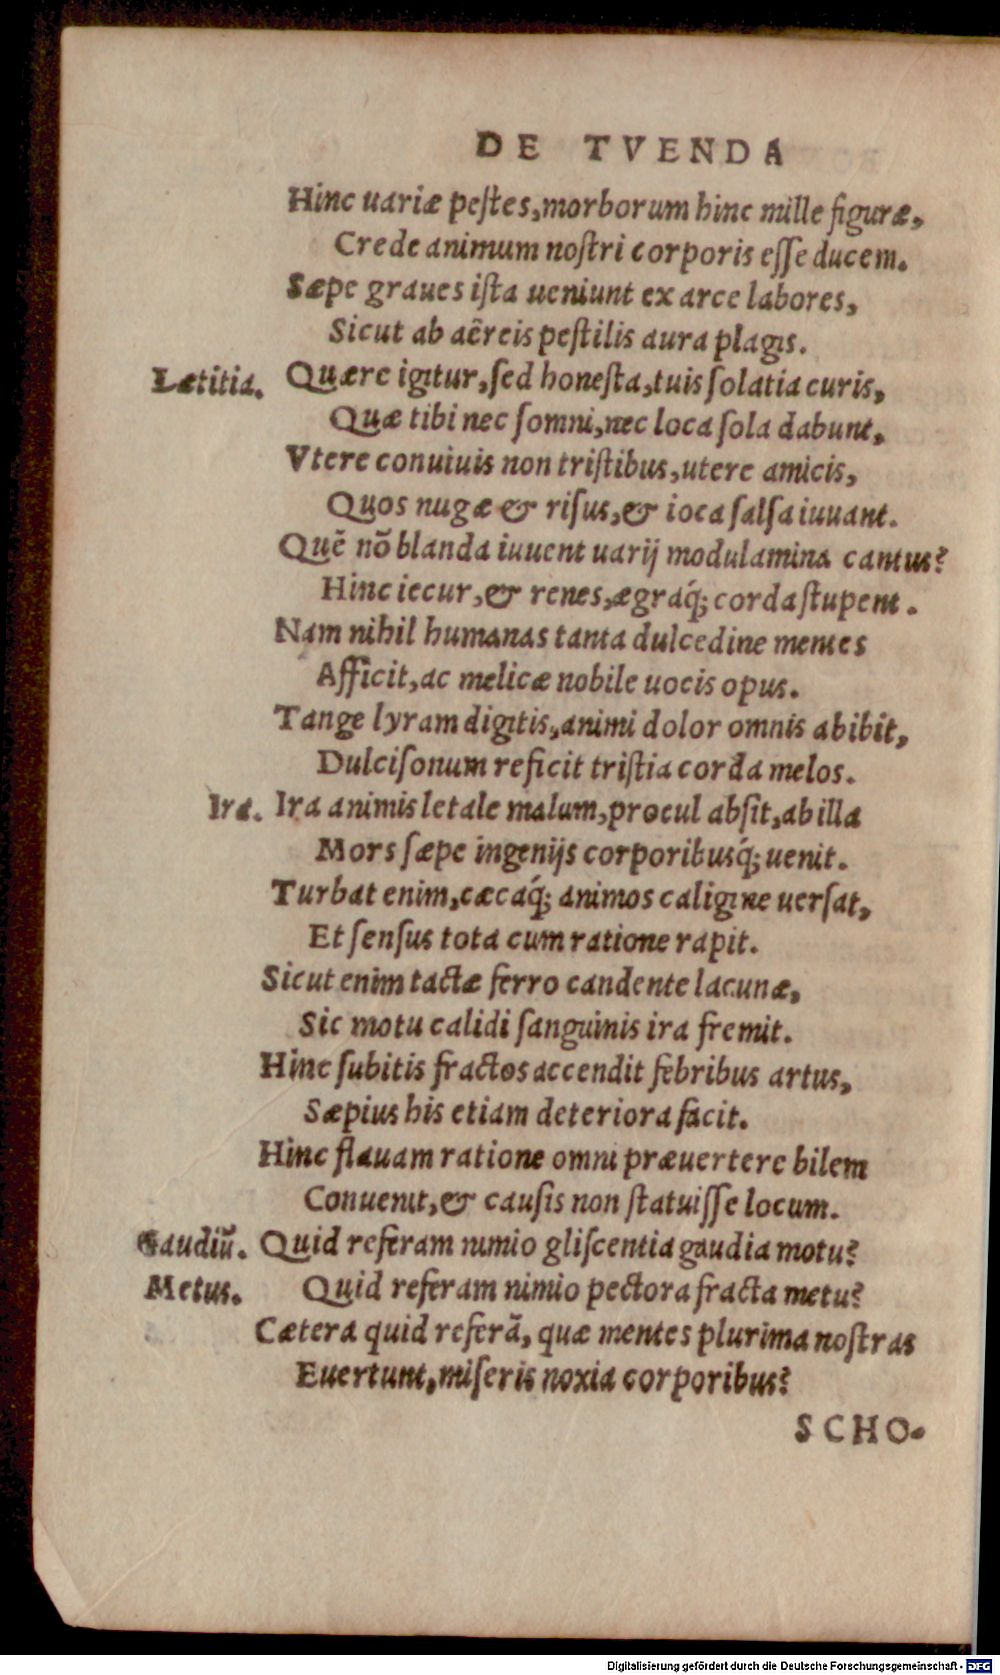 DE TVENDA
Hinc uariæ peſtes, morborum hinc mille figuræ,
Crede animum noſtri corporis eſſe ducem.
Sæpe graues iſta ueniunt ex arce labores,
Sicut ab aëreis peſtilis aura plagis.
Lætitia. Quære igitur, ſed honeſta, tuis ſolatia curis,
Quæ tibi nec ſomni, nec loca ſola dabunt,
Vtere conuiuis non triſtibus, utere amicis,
Quos nugæ & riſus, & ioca ſalſa iuuant.
Quē nō blanda iuuent uarij modulamina cantus?
Hinc iecur, & renes, ægraq́; corda ſtupent.
Nam nihil humanas tanta dulcedine mentes
Afficit, ac melicæ nobile uocis opus.
Tange lyram digitis, animi dolor omnis abibit,
Dulciſonum reficit triſtia corda melos.
Ira. Ira animis letale malum, procul abſit, ab illa
Mors ſæpe ingenijs corporibusq́; uenit.
Turbat enim, cæcaq́; animos caligine uerſat,
Et ſenſus tota cum ratione rapit.
Sicut enim tactæ ferro candente lacunæ,
Sic motu calidi ſanguinis ira fremit.
Hinc ſubitis fractos accendit febribus artus,
Sæpius his etiam deteriora facit.
Hinc flauam ratione omni præuertere bilem
Conuenit, & cauſis non ſtatuiſſe locum.
Gaudiū. Quid referam nimio gliſcentia gaudia motu?
Metus. Quid referam nimio pectora fracta metu?
Cætera quid referā, quæ mentes plurima noſtras
Euertunt, miſeris noxia corporibus?
SCHO-
Digitalisierung gefördert durch die Deutsche Forschungsgemeinschaft - DFG